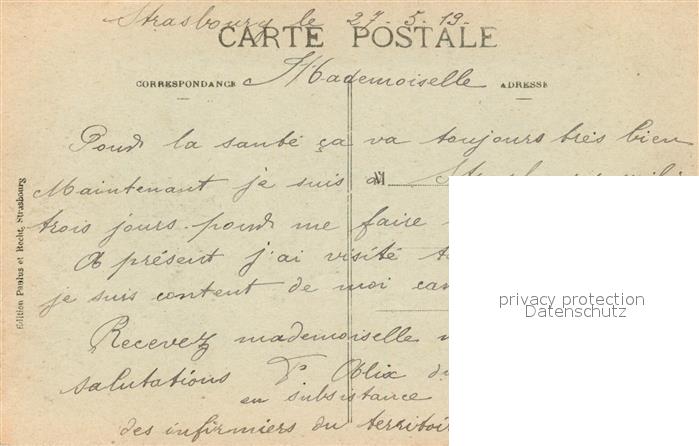 Strasbourg le 27-5-19-
CARTE POSTALE
CORRESPONDANCE
Mademoiselle
ADRESSE
Pour la santé ça va toujours très bien
Maintenant je suis a
M
trois jours pour me faire
A présent j'ai visité
je suis content de moi
Recevez mademoiselle
salutations
en subsistance
des infirmiers du territoir
Edition Paulus et Hecht, Strasbourg
privacy protection
Datenschutz